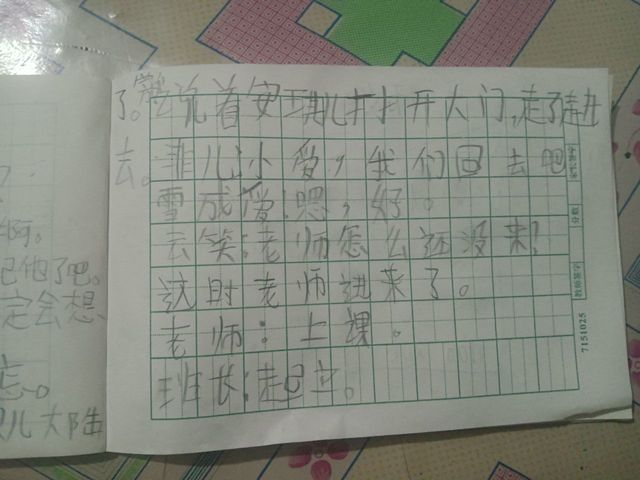 啊。
把他了吧。
定会想
忘。
儿大陆
了。说着安琪儿打开大门,走了进
去。菲儿:小爱,我们回去吧
雪成爱:嗯,好。
云笑:老师怎么还没来?
这时老师进来了。
老师:上课。
班长:起立。
家长签字
分数
教师签字
7151025